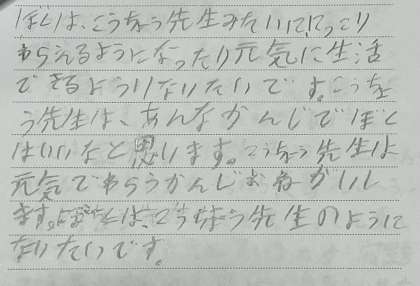 ぼくは、こうちょう先生みたいににっこり
わらえるようになったり元気に生活
できるようになりたいです。こうちょ
う先生は、あんなかんじでぼく
はいいなと思います。こうちょう先生は
元気でわらうかんじおねがいし
ます。ぼくは、こうちょう先生のように
なりたいです。